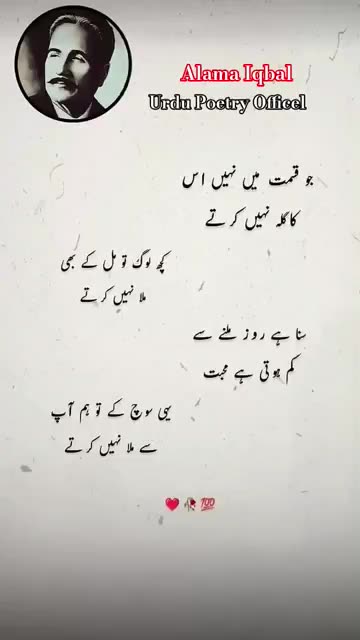 Alama Iqbal
Urdu Poetry Officel
جو قسمت میں نہیں اس
کا گلہ نہیں کرتے
کچھ لوگ تو مل کے بھی
ملا نہیں کرتے
سنا ہے روز ملنے سے
کم ہوتی ہے محبت
یہی سوچ کے تو ہم آپ
سے ملا نہیں کرتے
❤️🥀💯